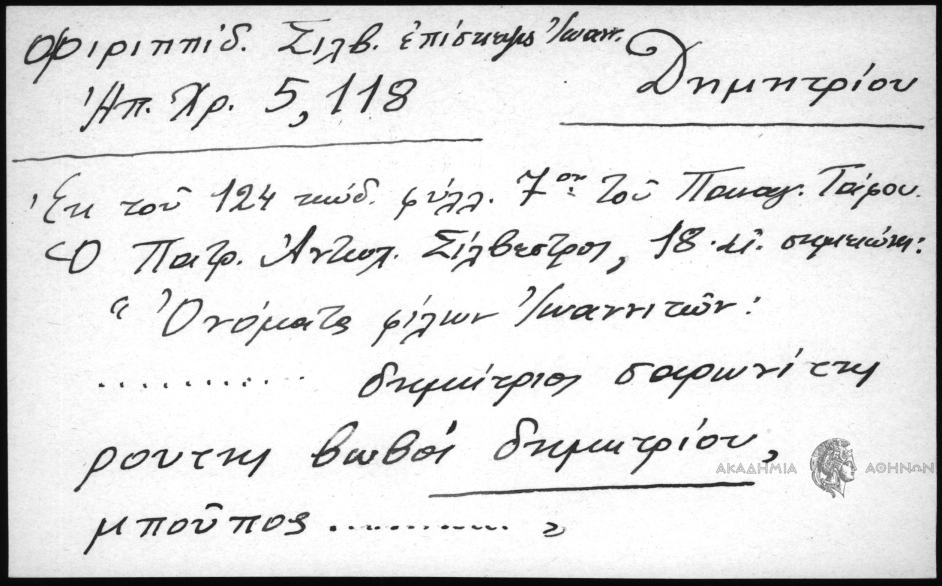 Φιριππίδ. Σιλβ. ἐπίσκεψις Ἰωαν.
Δημητρίου
Ἠπ. Χρ. 5, 118
Ἐκ τοῦ 124 κώδ. φύλλ. 7ον τοῦ Παναγ. Τάφου.
Ὁ Πατρ. Ἀντιοχ. Σίλβεστρος, 18 αἰ. σημειώνει:
“ Ὀνόματα φίλων Ἰωαννιτῶν:
.............. δημήτριος σαρωνίτης
ρούτης βωβός δημητρίου,
μποῦπος ............... „
ΑΚΑΔΗΜΙΑ ΑΘΗΝΩΝ